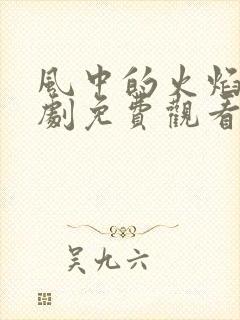 風中的火焰
劇免費觀看
吳九六